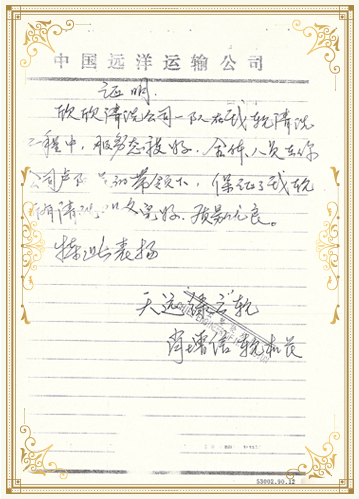 中国远洋运输公司
证明.
欣欣清洗公司一队在我轮清洗
工程中，服务态度好，全体人员在你
公司卢 的带领下，保证了我轮
清洗 完好，质量优良。
特此表扬
天远 轮
轮机员
S3002.90.12